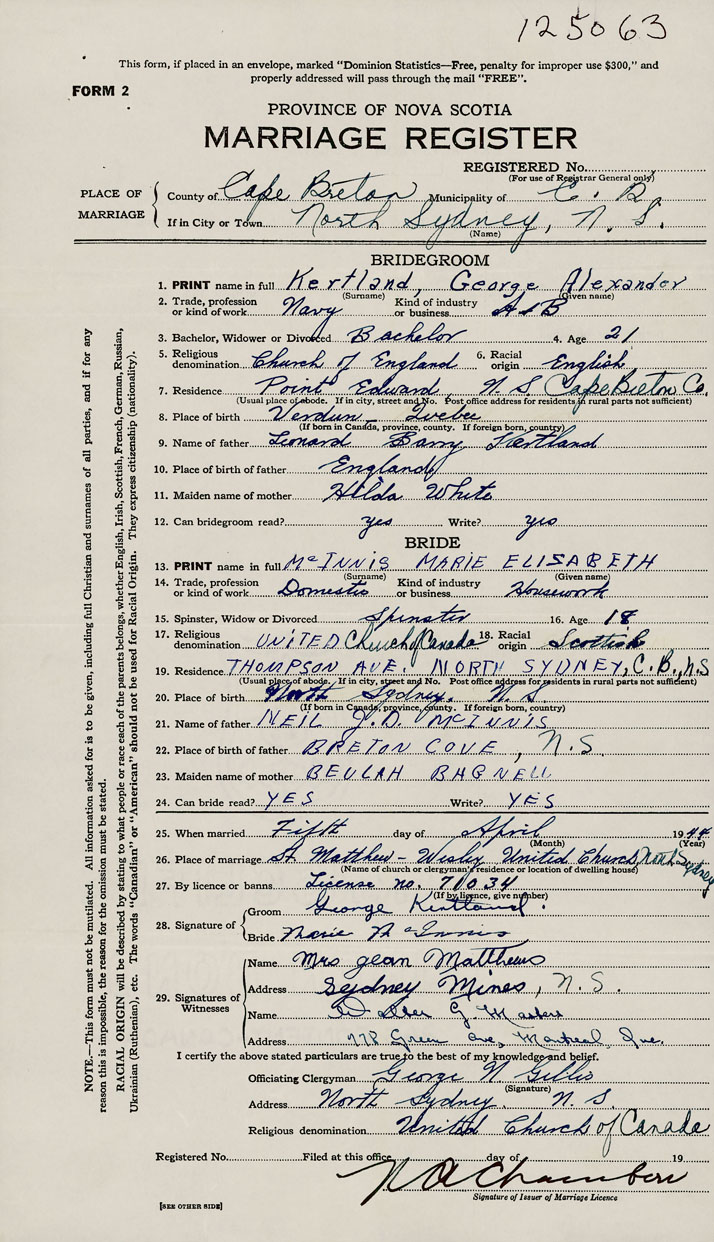 125063
This form, if placed in an envelope, marked "Dominion Statistics—Free, penalty for improper use $300," and
properly addressed will pass through the mail "FREE".
FORM 2
PROVINCE OF NOVA SCOTIA
MARRIAGE REGISTER
REGISTERED No.
(For use of Registrar General only)
PLACE OF MARRIAGE
County of Cape Breton Municipality of C. B.
If in City or Town North Sydney, N. S.
(Name)
BRIDEGROOM
1. PRINT name in full Kertland, George Alexander
(Surname) (Given name)
2. Trade, profession or kind of work Navy Kind of industry or business A/B
3. Bachelor, Widower or Divorced Bachelor 4. Age 21
5. Religious denomination Church of England 6. Racial origin English
7. Residence Point Edward, N.S. Cape Breton Co.
(Usual place of abode. If in city, street and No. Post office address for residents in rural parts not sufficient)
8. Place of birth Verdun Quebec
(If born in Canada, province, county. If foreign born, country)
9. Name of father Leonard Barry Kertland
10. Place of birth of father England
11. Maiden name of mother Hilda White
12. Can bridegroom read? yes Write? yes
BRIDE
13. PRINT name in full McINNIS MARIE ELISABETH
(Surname) (Given name)
14. Trade, profession or kind of work Domestic Kind of industry or business Housework
15. Spinster, Widow or Divorced Spinster 16. Age 18
17. Religious denomination UNITED Church of Canada 18. Racial origin Scottish
19. Residence THOMPSON AVE. NORTH SYDNEY, C.B., N.S
(Usual place of abode. If in city, street and No. Post office address for residents in rural parts not sufficient)
20. Place of birth North Sydney, N S
(If born in Canada, province, county. If foreign born, country)
21. Name of father NEIL J.D. McINNIS
22. Place of birth of father BRETON COVE, N.S
23. Maiden name of mother BEULAH BAGNELL
24. Can bride read? YES Write? YES
25. When married Fifth day of April 1944
(Month) (Year)
26. Place of marriage St. Matthew - Wesley United Church, North Sydney
(Name of church or clergyman's residence or location of dwelling house)
27. By licence or banns License no. 71034
(If by licence, give number)
28. Signature of
Groom George Kertland.
Bride Marie McInnis
29. Signatures of Witnesses
Name Mrs Jean Matthews
Address Sydney Mines, N.S.
Name Walter G. Masters
Address 778 Green Ave, Montreal Que.
I certify the above stated particulars are true to the best of my knowledge and belief.
Officiating Clergyman George N. Gillis
(Signature)
Address North Sydney, N. S.
Religious denomination United Church of Canada
Registered No. Filed at this office day of 19
N A Chambers
Signature of Issuer of Marriage Licence
[SEE OTHER SIDE]
NOTE.—This form must not be mutilated. All information asked for is to be given, including full Christian and surnames of all parties, and if for any
reason this is impossible, the reason for the omission must be stated.
RACIAL ORIGIN will be described by stating to what people or race each of the parents belongs, whether English, Irish, Scottish, French, German, Russian,
Ukrainian (Ruthenian), etc. The words "Canadian" or "American" should not be used for Racial Origin. They express citizenship (nationality).